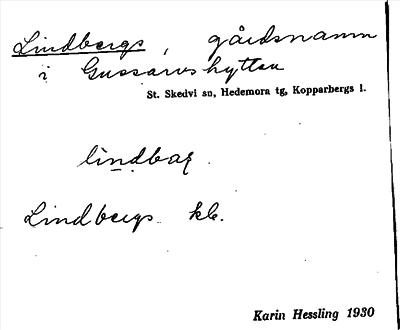 Lindbergs, gårdsnamn
i Gussarvshyttan
St. Skedvi sn, Hedemora tg, Kopparbergs l.
lindbaʀ.
Lindbergs kb.
Karin Hessling 1930